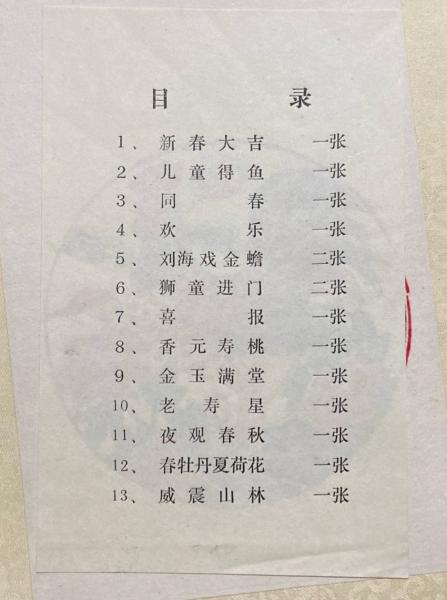 目 录
1、新春大吉 一张
2、儿童得鱼 一张
3、同春 一张
4、欢乐 一张
5、刘海戏金蟾 二张
6、狮童进门 二张
7、喜报 一张
8、香元寿桃 一张
9、金玉满堂 一张
10、老寿星 一张
11、夜观春秋 一张
12、春牡丹夏荷花 一张
13、威震山林 一张